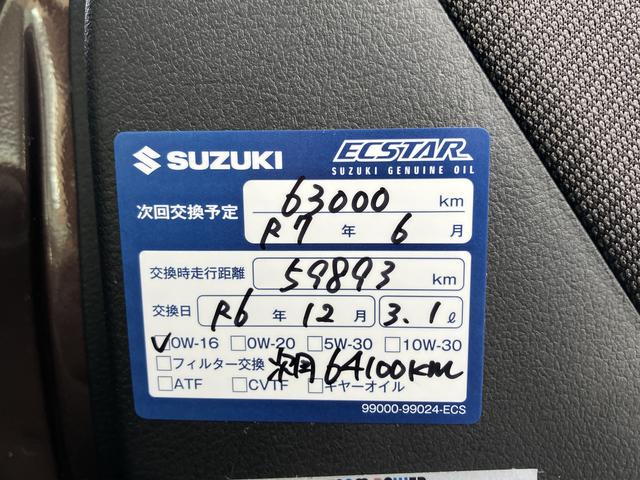 SUZUKI ECSTAR
SUZUKI GENUINE OIL
次回交換予定 63000 km
R7 年 6 月
交換時走行距離 59893 km
交換日 R6 年 12 月 3.1ℓ
✓0W-16 □0W-20 □5W-30 □10W-30
□フィルター交換 次回 64100KM
□ATF □CVTF □ギヤーオイル
99000-99024-ECS